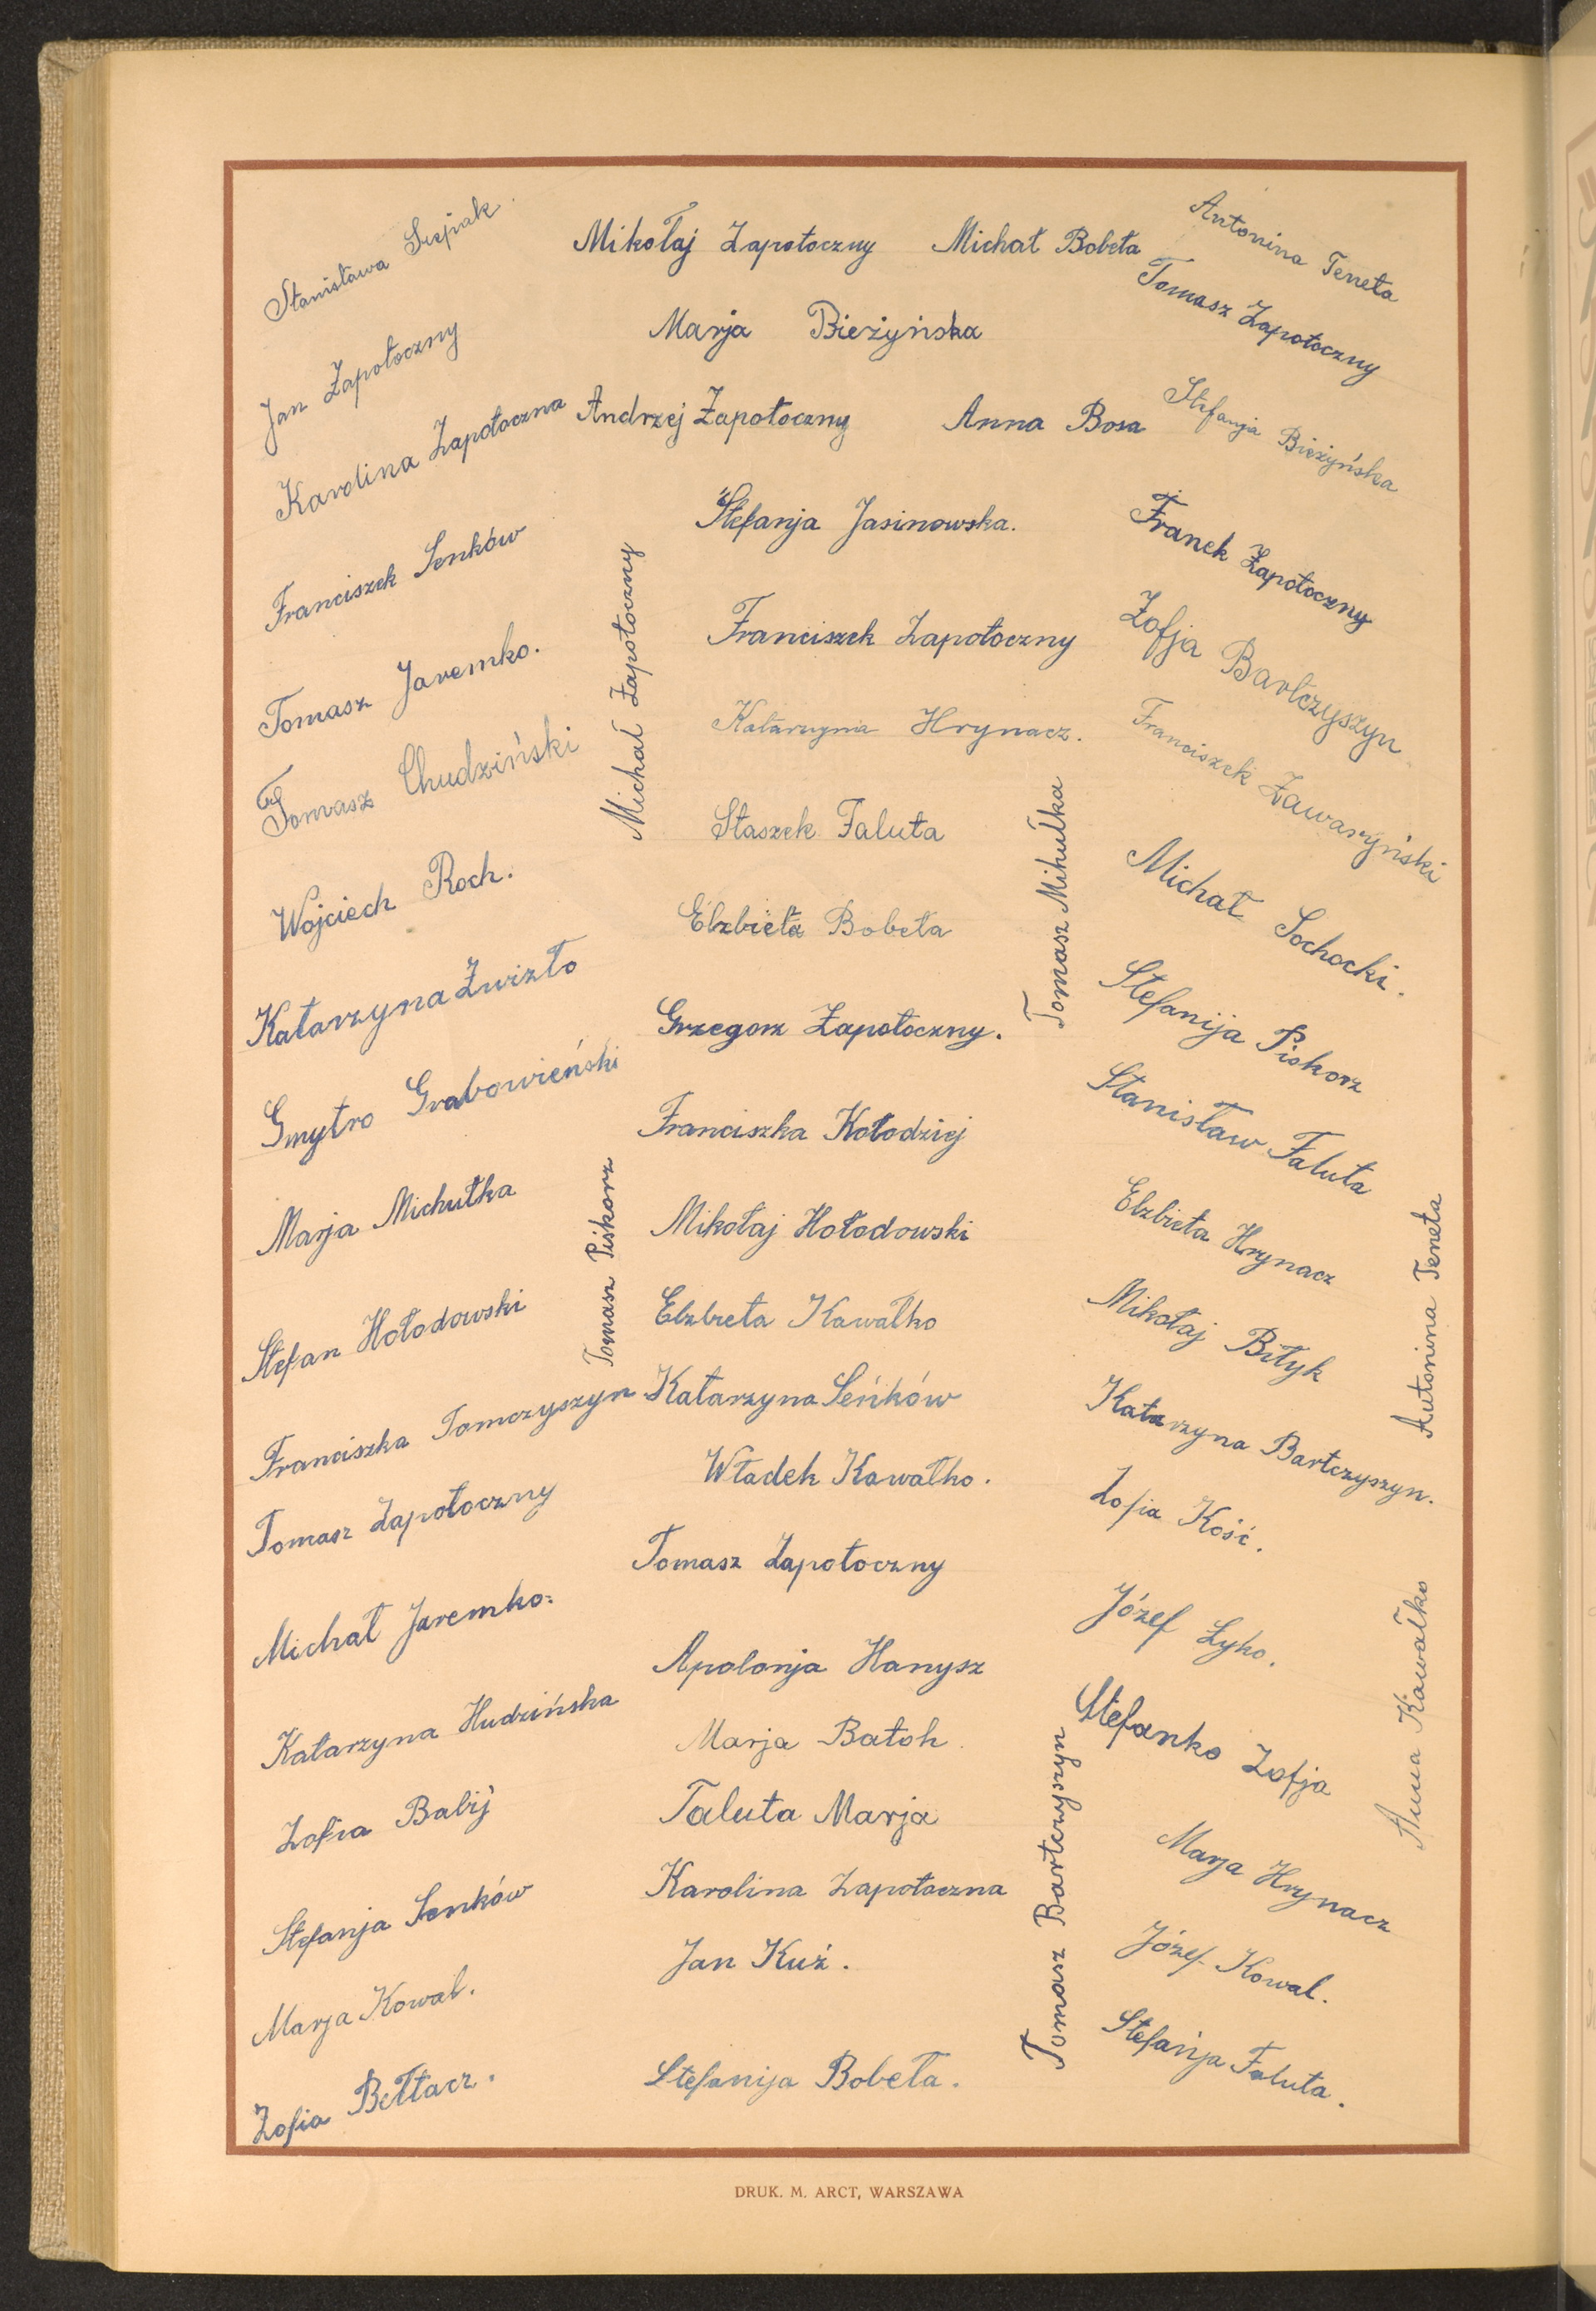 Stanisława
Jan Zapotoczny
Karolina Zapotoczna
Franciszek Senków
Tomasz Jaremko.
Tomasz Chudziński
Wojciech Roch.
Katarzyna Zwizło
Gmytro Grabowieński
Marja Michułka
Stefan Hołodowski
Franciszka Tomczyszyn
Tomasz Zapotoczny
Michał Jaremko.
Katarzyna Hudzińska
Zofia Babij
Stefanja Senków
Marja Kowal.
Zofia Bełtacz.
Michał Zapotoczny
Tomasz Piskorz
Mikołaj Zapotoczny
Michał Bobeta
Marja Bieżyńska
Andrzej Zapotoczny
Anna Bosa
Stefanja Jasinowska.
Franciszek Zapotoczny
Katarzyna Hrynacz.
Staszek Faluta
Elżbieta Bobeta
Grzegorz Zapotoczny.
Franciszka Kołodziej
Mikołaj Hołodowski
Elzbieta Kawałko
Katarzyna Seńków
Władek Kawałko.
Tomasz Zapotoczny
Apolonja Hanysz
Marja Batoh
Faluta Marja
Karolina Zapotoczna
Jan Kuź.
Stefanija Bobeta.
Tomasz Mihułka
Tomasz Bartczyszyn
Antonina Teneta
Tomasz Zapotoczny
Stefanja Bieżyńska
Franek Zapotoczny
Zofja Bartczyszyn
Franciszek Zawaryński
Michał Sochocki.
Stefanija Piskorz
Stanisław Faluta
Elzbieta Hrynacz
Mikołaj Biłyk
Katarzyna Bartczyszyn.
Zofia Kość.
Józef Łyko.
Stefanko Zofja
Marja Hrynacz
Józef Kowal.
Stefanja Faluta.
Antonina Teneta
Anna Kawałko
DRUK. M. ARCT, WARSZAWA